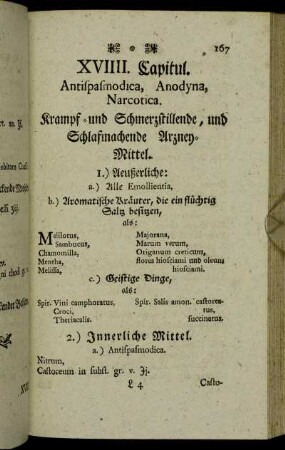 167
XVIIII. Capitul.
Antispasmodica, Anodyna,
Narcotica.
Krampf- und Schmerzstillende, und
Schlafmachende Arzney-
Mittel.
1.) Aeußerliche:
a.) Alle Emollientia,
b.) Aromatische Kräuter, die ein flüchtig
Saltz besitzen,
als:
Melilotus, Majorana,
Sambucus, Marum verum,
Chamomilla, Origanum creticum,
Mentha, flores hiosciami und oleum
Melissa, hiosciami.
c.) Geistige Dinge,
als:
Spir. Vini camphoratus, Spir. Salis amon. castoreus,
Croci, succinatus.
Theriacalis.
2.) Innerliche Mittel.
a.) Antispasmodica.
Nitrum,
Castoreum in subst. gr. v. Ʒj.
L 4 Casto-